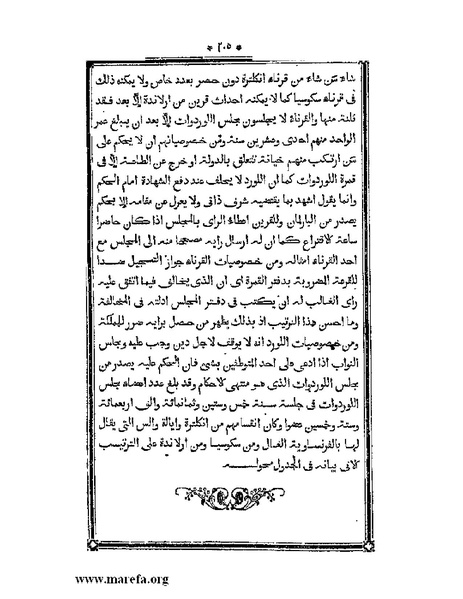 * ٢٠٥ *
شاء ممن شاء من قرناء انكلترة دون حصر بعدد خاص ولا يمكنه ذلك
فى قرناء سكوسيا كما لا يمكنه احداث قرين من ارلاندة إلا بعد فقد
ثلثة منها والقرناء لا يجلسون بمجلس اللوردوات إلا بعد ان يبلغ عمر
الواحد منهم احدى وعشرين سنة ومن خصوصياتهم ان لا يحكم على
من ارتكب منهم خيانة تتعلق بالدولة او خرج عن الطاعة إلا فى
قمرة اللوردوات كما ان اللورد لا يحلف عند دفع الشهادة امام الحكم
وانما يقول اشهد بما يقتضيه شرف ذاتى ولا يعزل عن مقامه إلا بحكم
يصدر من البارلمان وللقرين اعطاء الراى بالمجلس اذا كان حاضرا
ساعة الاقتراع كما ان له ارسال رايه مصححا منه الى المجلس مع
احد القرناء امثاله ومن خصوصيات القرناء جواز التسجيل ضدا
للقرعة المضروبة بدفتر القمرة اى ان الذى يخالف فيما اتفق عليه
راى الغالب له ان يكتب فى دفتر المجلس ادلته فى المخالفة
وما احسن هذا الترتيب اذ بذلك يظهر من حصل برايه ضرر للمملكة
ومن خصوصيات اللورد انه لا يوقف لاجل دين وجب عليه ومجلس
النواب اذا ادعى على احد المتوظفين بشى فان الحكم عليه يصدر من
مجلس اللوردوات الذى هو منتهى الاحكام وقد بلغ عدد اعضاء مجلس
اللوردوات فى جلسة سنة خمس وستين وثمانمائة والف اربعمائة
وستة وخمسين عضوا وكان انقسامهم من انكلترة وايالة والس التى يقال
لها بالفرنساوية الغال ومن سكوسيا ومن ارلاندة على الترتيب
الاتى بيانه فى الجدول
www.marefa.org